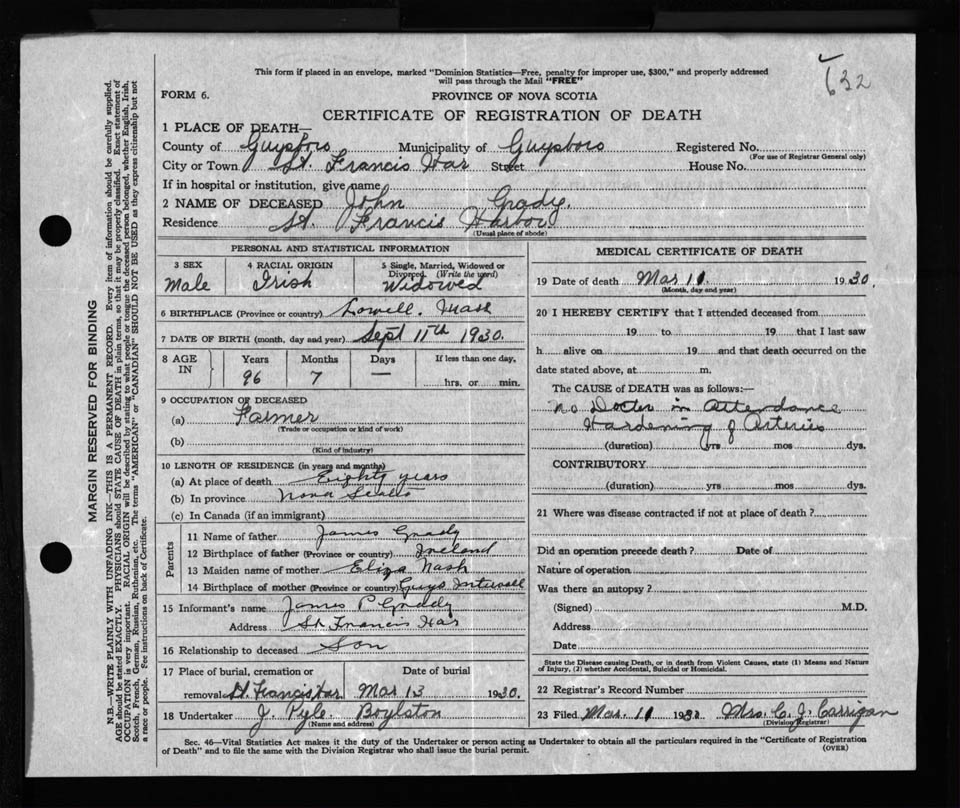 632
This form if placed in an envelope, marked "Dominion Statistics—Free, penalty for improper use, $300," and properly addressed
will pass through the Mail "FREE"
FORM 6. PROVINCE OF NOVA SCOTIA
CERTIFICATE OF REGISTRATION OF DEATH
1 PLACE OF DEATH—
County of Guysboro Municipality of Guysboro Registered No.
(For use of Registrar General only)
City or Town St. Francis Har Street House No.
If in hospital or institution, give name
2 NAME OF DECEASED John Grady.
Residence St. Francis Harbour
(Usual place of abode)
PERSONAL AND STATISTICAL INFORMATION
3 SEX 4 RACIAL ORIGIN 5 Single, Married, Widowed or
Divorced (Write the word)
Male Irish Widowed
6 BIRTHPLACE (Province or country) Lowell. Mass
7 DATE OF BIRTH (month, day and year) Sept 11th 1930.
8 AGE IN Years Months Days If less than one day,
96 7 — hrs. or min.
9 OCCUPATION OF DECEASED
(a) Farmer
(Trade or occupation or kind of work)
(b)
(Kind of industry)
10 LENGTH OF RESIDENCE (in years and months)
(a) At place of death Eighty years
(b) In province Nova Scotia
(c) In Canada (if an immigrant)
Parents
11 Name of father James Grady
12 Birthplace of father (Province or country) Ireland
13 Maiden name of mother Eliza Nash
14 Birthplace of mother (Province or country) Guys Intervall
15 Informant's name James P Grady
Address St Francis Har
16 Relationship to deceased Son
17 Place of burial, cremation or Date of burial
removal St. Francis Har. Mar 13 1930.
18 Undertaker J. Pyle Boylston
(Name and address)
MEDICAL CERTIFICATE OF DEATH
19 Date of death Mar 11 1930.
(Month, day and year)
20 I HEREBY CERTIFY that I attended deceased from
19 to 19 that I last saw
h alive on 19 and that death occurred on the
date stated above, at m.
The CAUSE of DEATH was as follows:—
No Doctor in Attendance
Hardening of Arteries
(duration) yrs mos dys.
CONTRIBUTORY
(duration) yrs mos dys.
21 Where was disease contracted if not at place of death?
Did an operation precede death? Date of
Nature of operation
Was there an autopsy?
(Signed) M.D.
Address
Date
State the Disease causing Death, or in death from Violent Causes, state (1) Means and Nature
of Injury, (2) whether Accidental, Suicidal or Homicidal.
22 Registrar's Record Number
23 Filed Mar. 11 1930 Mrs. C. J. Carrigan
(Division Registrar)
Sec. 46—Vital Statistics Act makes it the duty of the Undertaker or person acting as Undertaker to obtain all the particulars required in the "Certificate of Registration
of Death" and to file the same with the Division Registrar who shall issue the burial permit. (OVER)
MARGIN RESERVED FOR BINDING
N.B.—WRITE PLAINLY WITH UNFADING INK—THIS IS A PERMANENT RECORD. Every item of information should be carefully supplied.
AGE should be stated EXACTLY. PHYSICIANS should STATE CAUSE OF DEATH in plain terms, so that it may be properly classified. Exact statement of
OCCUPATION is very important. RACIAL ORIGIN will be described by stating to what people or tongue the deceased person belonged, whether English, Irish,
Scotch, French, German, Russian, Ruthenian, etc. The terms "AMERICAN" or "CANADIAN" SHOULD NOT BE USED as they express citizenship but not
a race or people. See instructions on back of Certificate.